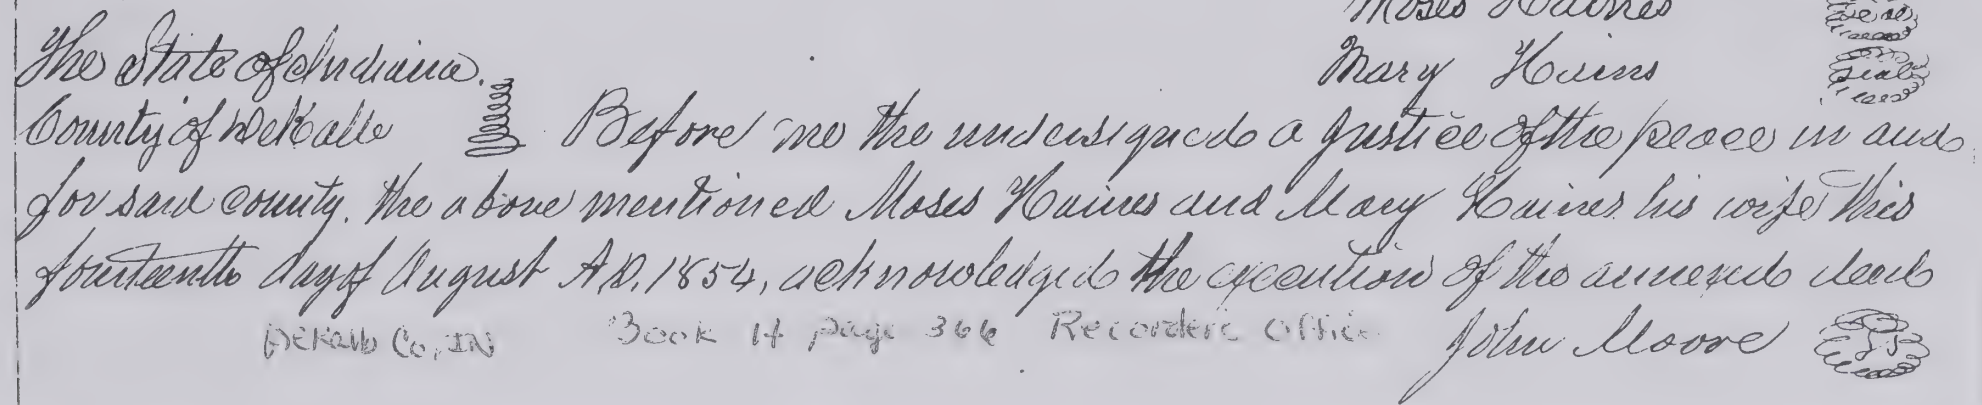 Moses Haines Seal
The State of Indiana. Mary Hains Seal
County of DeKalb Before me the undersigned a Justice of the peace in and
for said county. the above mentioned Moses Haines and Mary Haines his wife this
fourteenth day of August A.D. 1854, acknowledged the execution of the annexed deed
DeKalb Co, IN Book H page 366 Recorders Office John Moore